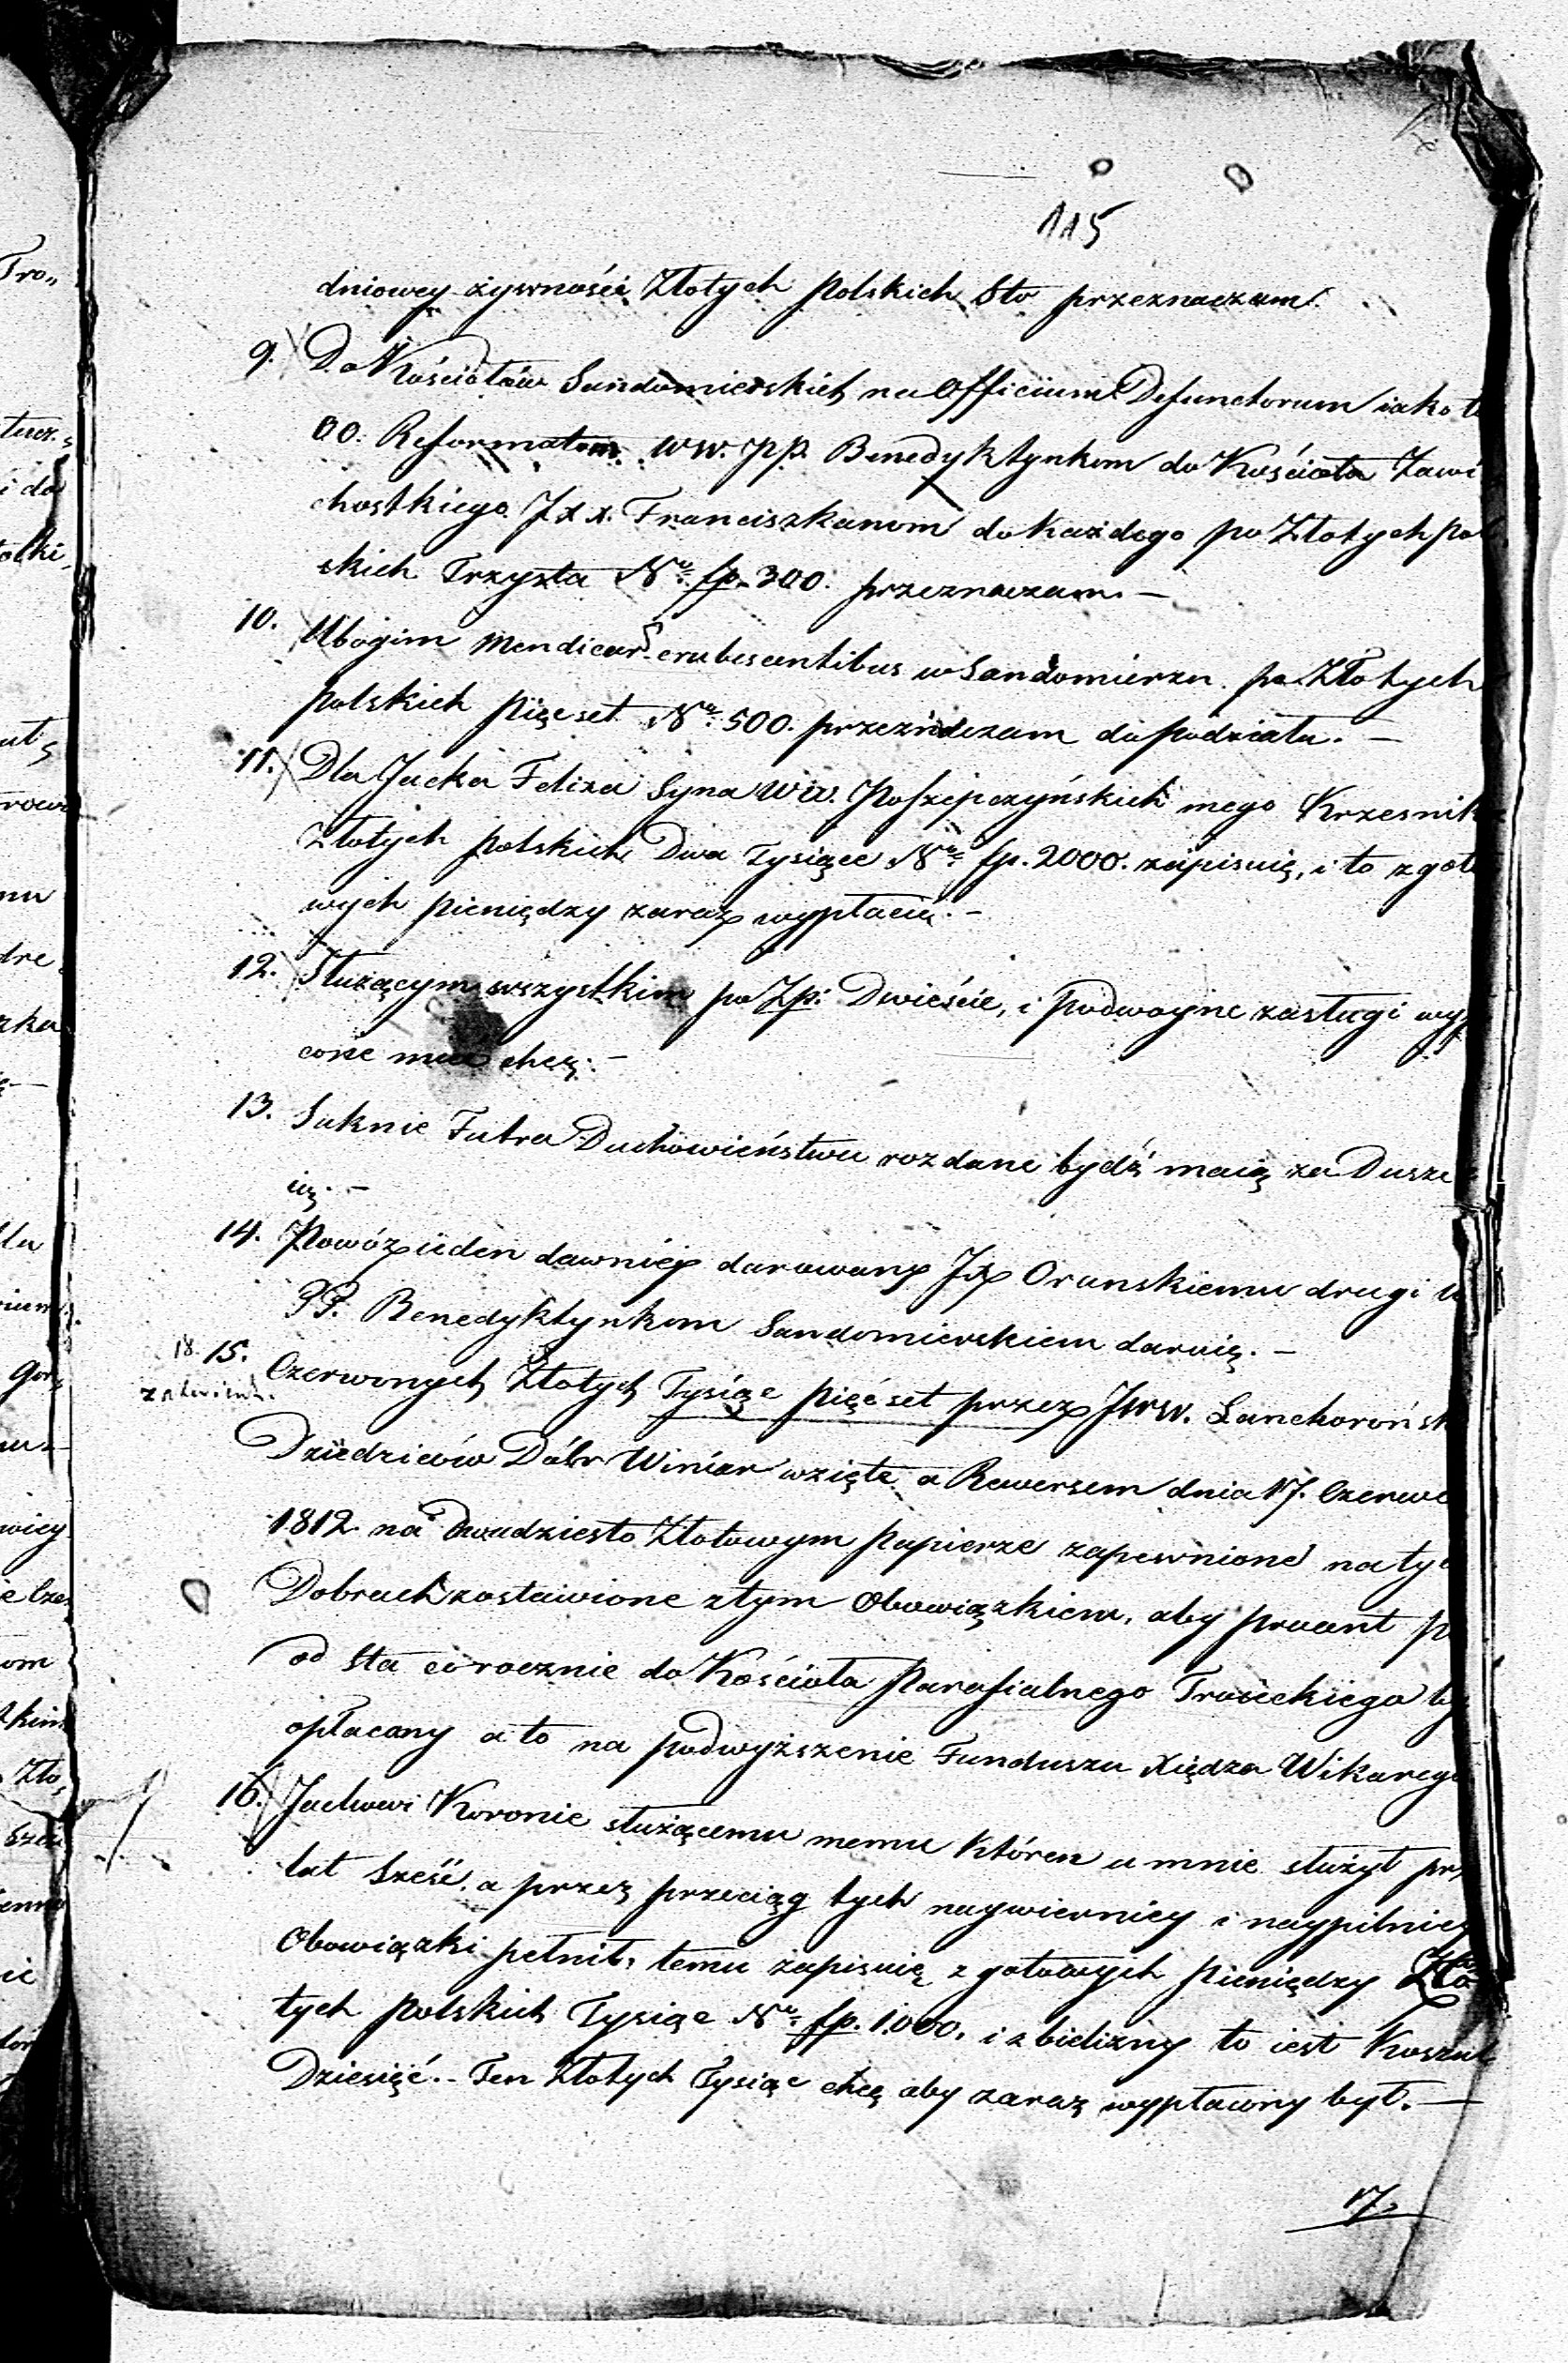 115
dniowey żywności Złotych Polskich Sto przeznaczam.
9. Do Kościołów Sandomierskich na Officium Defunctorum iako t
OO. Reformatom WW. PP. Benedyktynkom do Kościoła Zawi
chostkiego JXX. Franciszkanom do każdego po Złotych pol
skich Trzysta Nº fp. 300. przeznaczam. –
10. Ubogim Mendican erubescentibus w Sandomierzu po Złotych
polskich pięćset Nº 500. przeznaczam do podziału. –
11. Dla Jacka Felixa Syna WW. mego Krzesnik
Złotych polskich Dwa Tysiące Nº fp. 2000. zapisuię, i to z goto
wych pieniędzy zaraz wypłacić. –
12. Służącym wszystkim po Zp: Dwieście, i podwoyne zasługi wyp
cone mieć chcę. –
13. Suknie Futra Duchowieństwu rozdane bydź maią za Dusze
ię. –
14. Powóz ieden dawniey darowany JX Oranskiemu drugi
PP. Benedyktynkom Sandomierskiem daruię. –
18. 15. Czerwonych Złotych Tysiąc pięćset przez JWW. Lanckorońsk
Dziedziców Dóbr Winiar wzięte a Rewersem dnia 17. Czerwc
1812 na Dwudziesto Złotowym papierze zapewnione na tyc
Dobrach zostawione z tym Obowiązkiem, aby procent p
od sta corocznie do Kościoła Parafialnego Troieckiego by
opłacany a to na podwyższenie Funduszu Xiędza Wikarego
16. Jackowi Koronie służącemu memu któren u mnie służył prz
lat sześć a przez przeciąg tych naywierniey i naypilniey
Obowiązki pełnił, temu zapisuię z gotowych pieniędzy Zło
tych Polskich Tysiąc Nº fp. 1.000. i z bielizny to iest Koszul
Dziesięć. – Ten Złotych Tysiąc chcę aby zaraz wypłacony był. –
17.